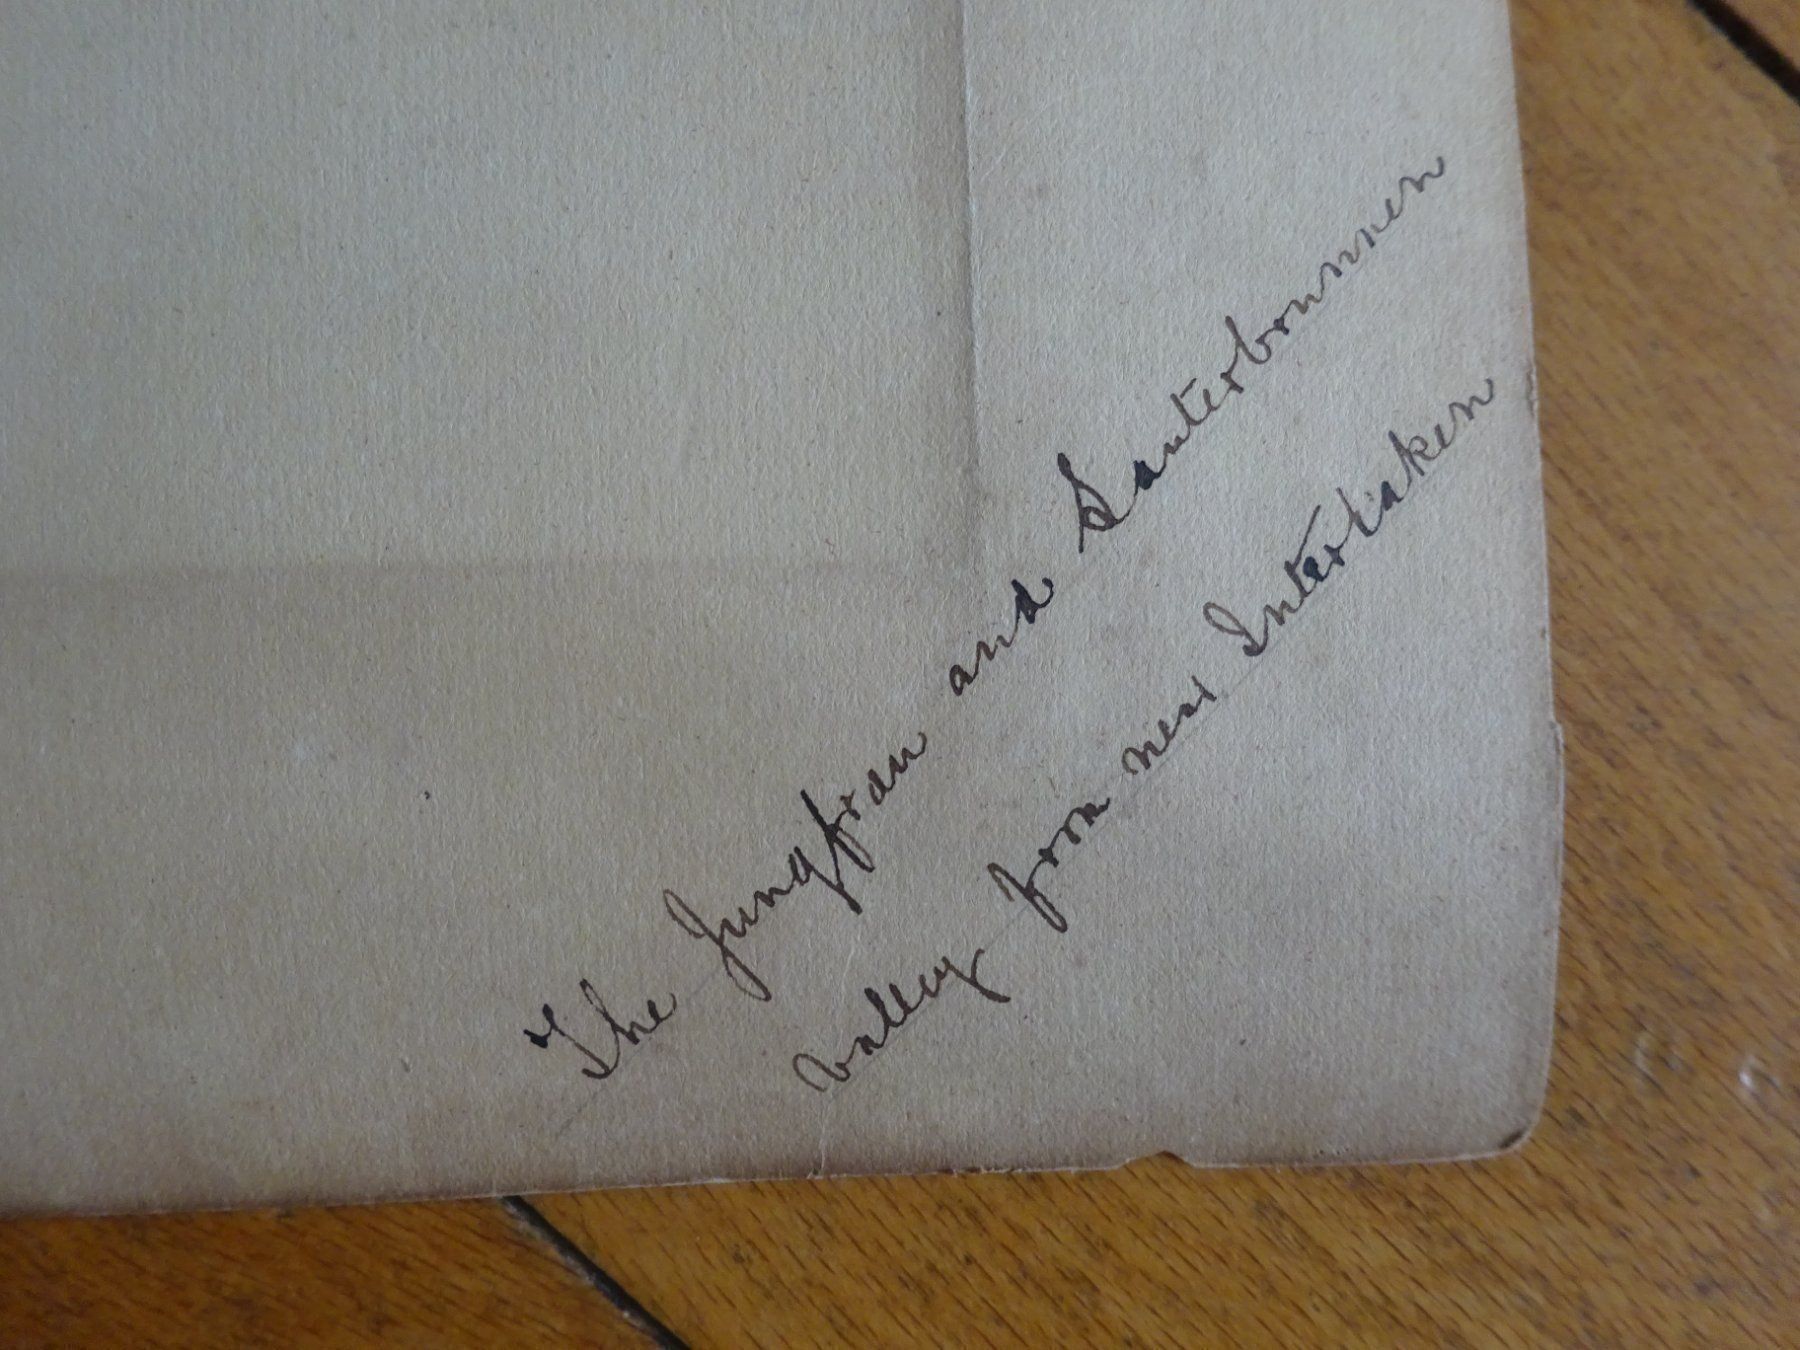 The Jungfrau and Lauterbrunnen
valley from near Interlaken